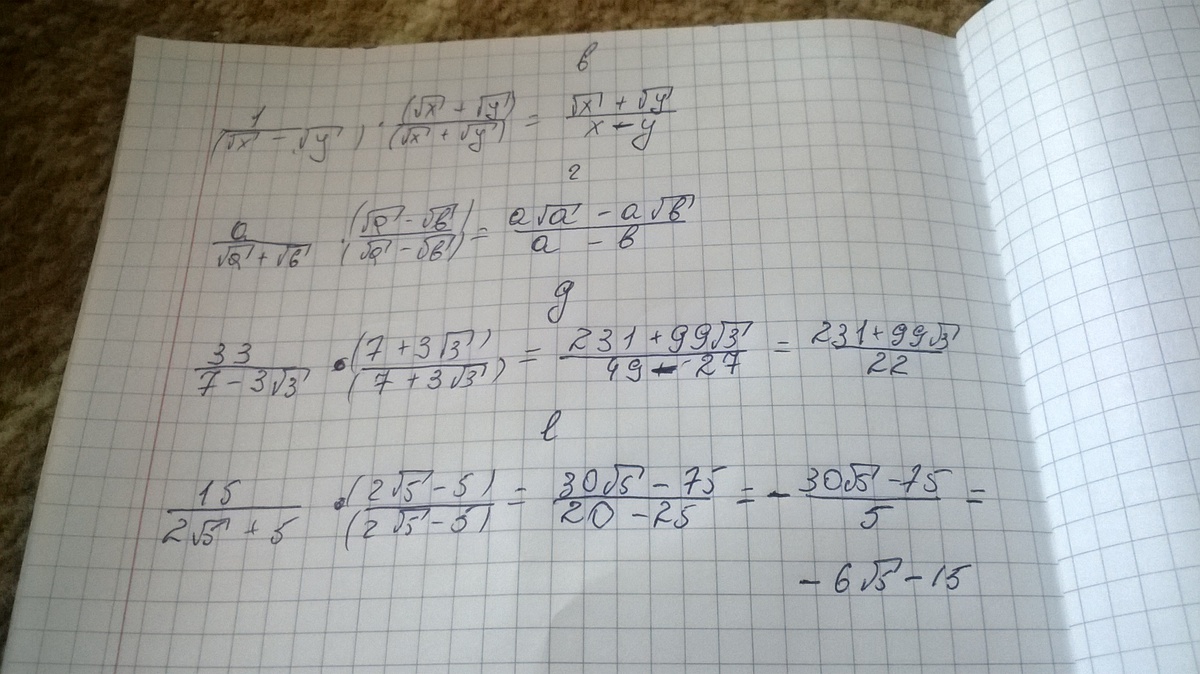 в
1/(√x - √y) · (√x + √y)/(√x + √y) = (√x + √y)/(x - y)
г
a/(√a + √в) · (√a - √в)/(√a - √в) = (a√a - a√в)/(a - в)
д
33/(7 - 3√3) · (7 + 3√3)/(7 + 3√3) = (231 + 99√3)/(49 - 27) = (231 + 99√3)/22
е
15/(2√5 + 5) · (2√5 - 5)/(2√5 - 5) = (30√5 - 75)/(20 - 25) = - (30√5 - 75)/5 =
- 6√5 - 15